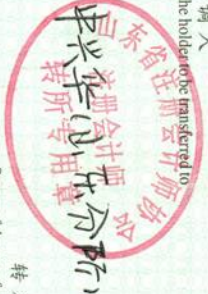 调入
the holder to be transferred to
山东省注册会计师协会
注册会计师
转所专用章
中兴华山东分所
转